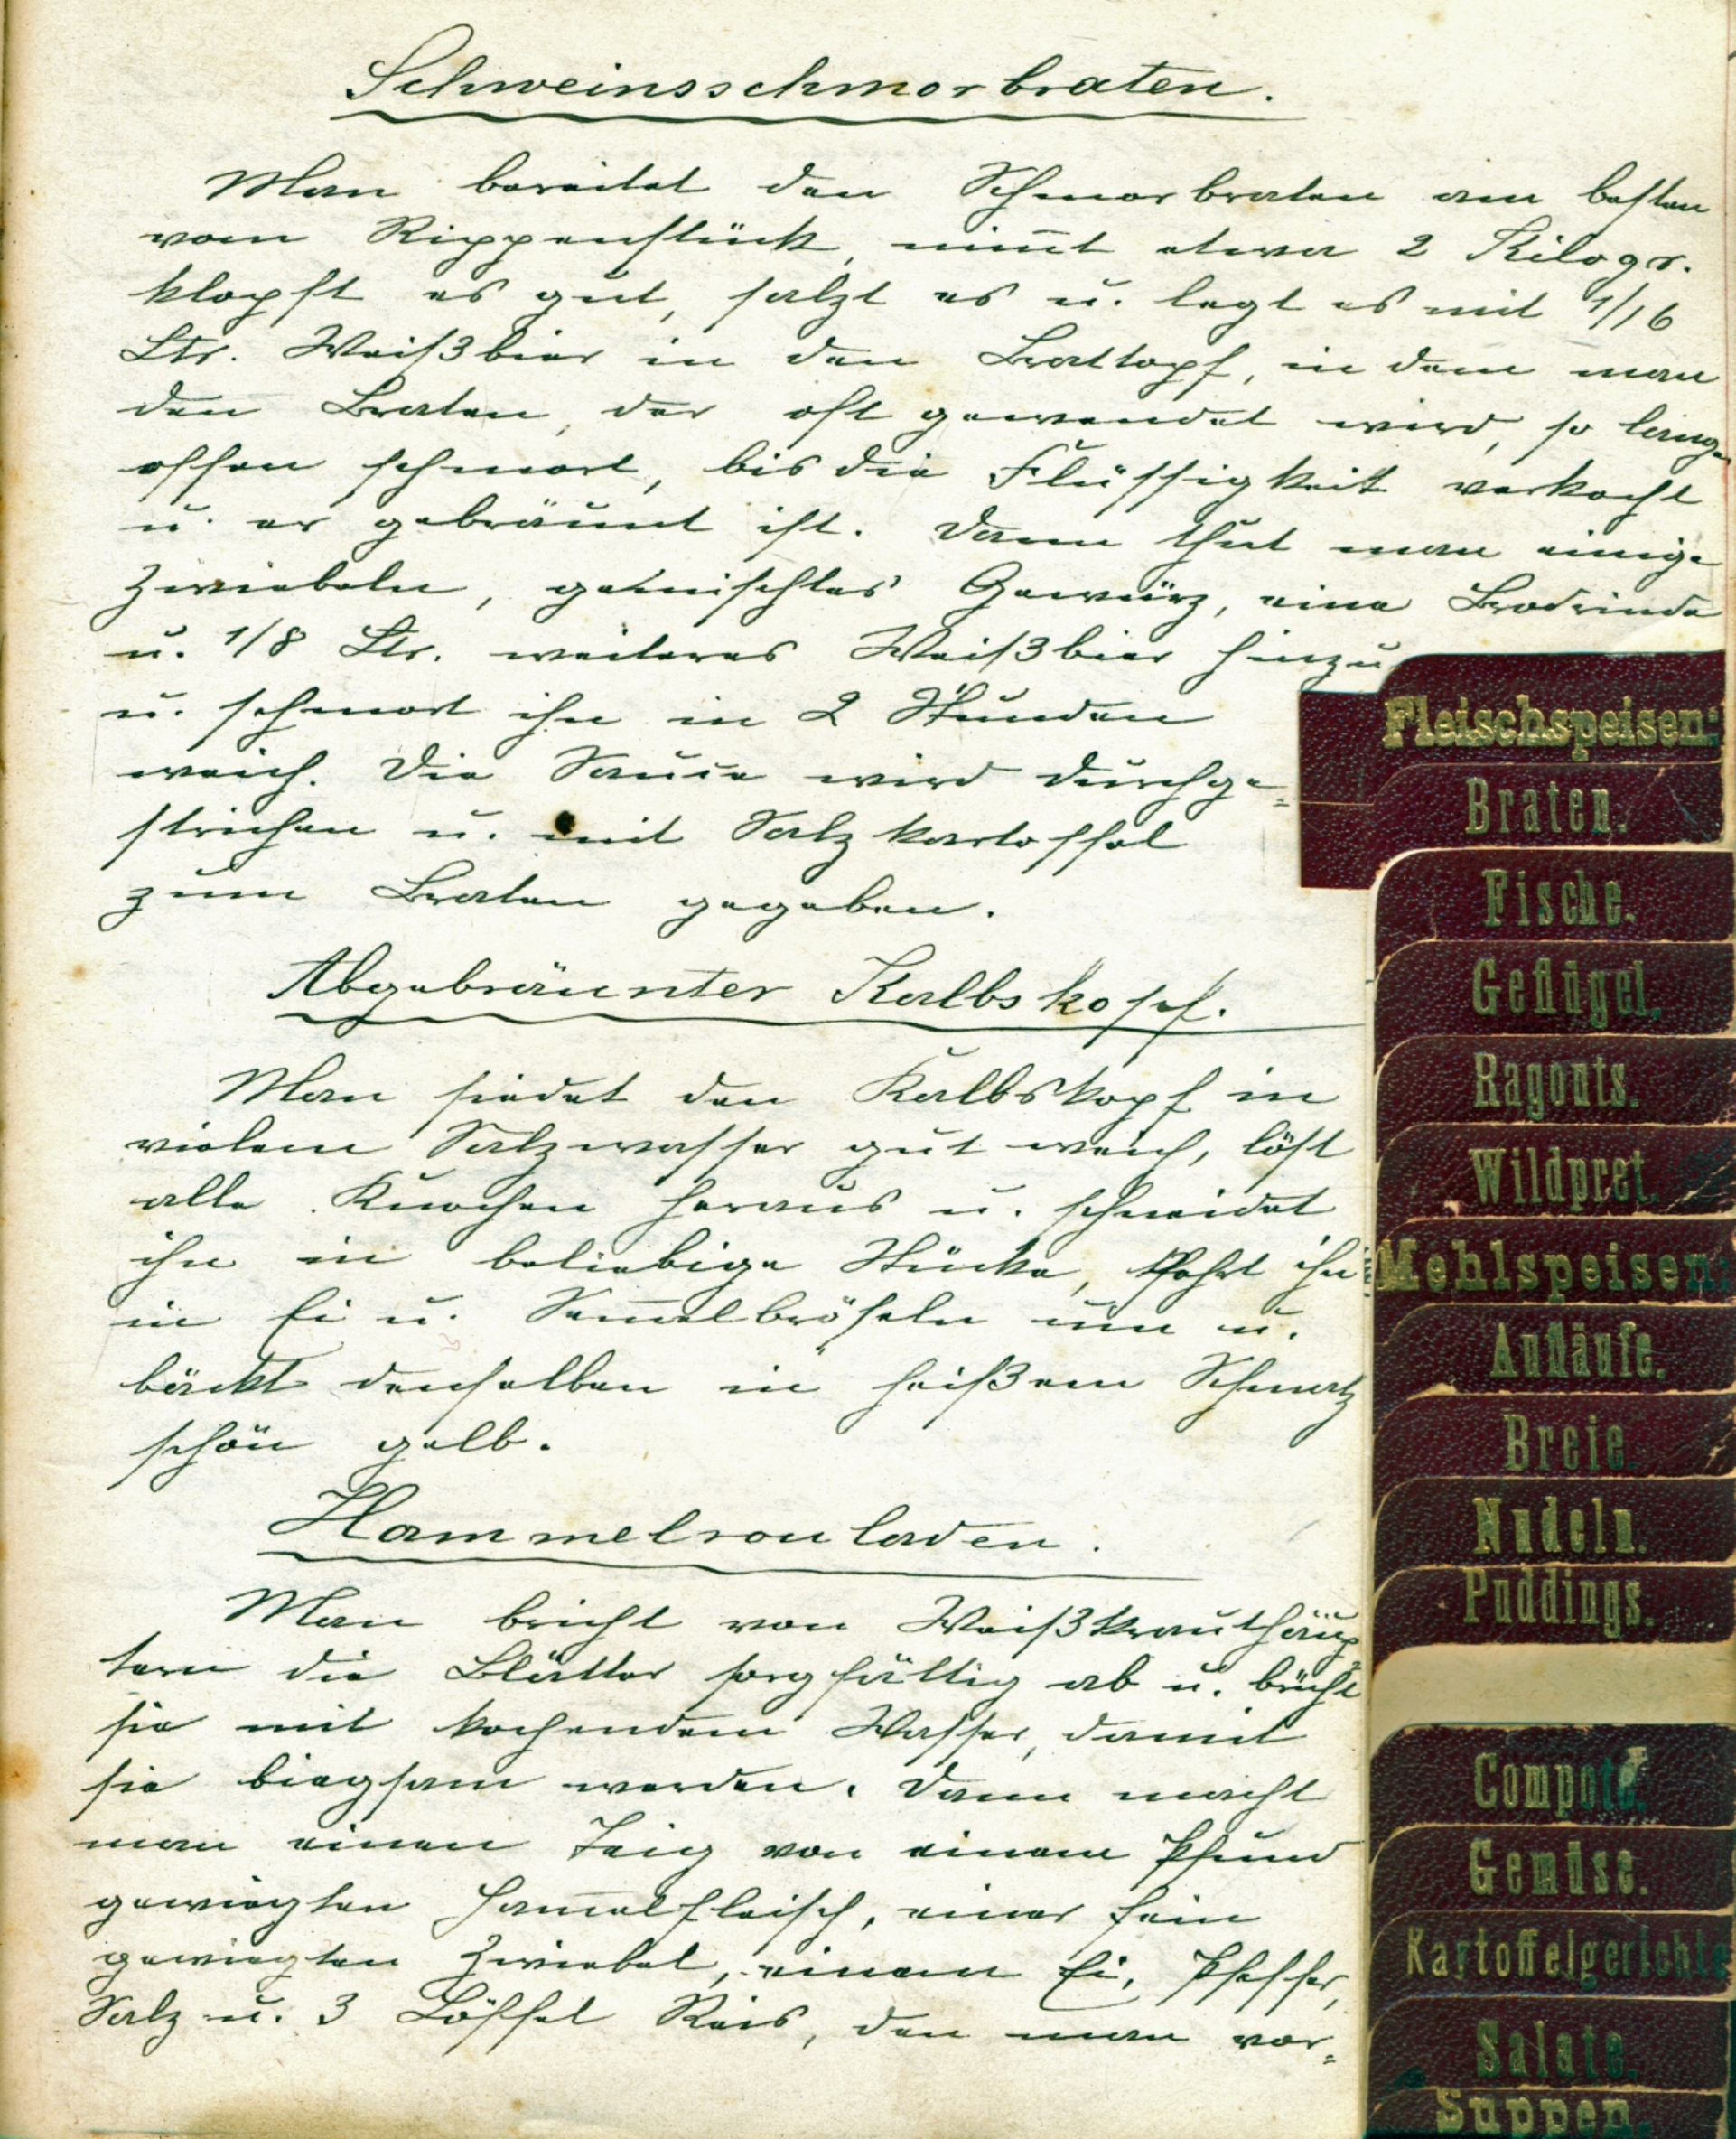 Schweinsschmorbraten.
Man bereitet den Schmorbraten am besten
vom Rippenstück, nim̅t etwa 2 Kilogr.
klopft es gut, salzt es u. legt es mit 1/16
Ltr. Weißbier in den Brattopf, in dem man
den Braten, der oft gewendet wird, so lange
offen schmort, bis die Flüssigkeit verkocht
u. er gebräunt ist. Dann thut man einige
Zwiebeln, gemischtes Gewürz, eine Brodrinde
u. 1/8 Ltr. weiteres Weißbier hinzu
u. schmort ihn in 2 Stunden
weich. Die Sauce wird durchge=
strichen u. mit Salzkartoffel
zum Braten gegeben.
Abgebräunter Kalbskopf.
Man siedet den Kalbskopf in
vielem Salzwasser gut weich, löst
alle Knochen heraus u. schneidet
ihn in beliebige Stücke, kehrt ihn
in Ei u. Sem̅elbröseln um u.
bäckt denselben in heißem Schmalz
schön gelb.
Hammelrouladen.
Man bricht von Weißkrauthäup=
tern die Blätter sorgfältig ab u. brüht
sie mit kochendem Wasser, damit
sie biegsam werden. Dann macht
man einen Teig von einem Pfund
gewiegten Ham̅elfleisch, einer fein
gewiegten Zwiebel, einem Ei, Pfeffer,
Salz u. 3 Löffel Reis, den man vor=
Fleischspeisen:
Braten.
Fische.
Geflügel.
Ragouts.
Wildpret.
Mehlspeisen:
Aufläufe.
Breie.
Nudeln.
Puddings.
Compote.
Gemüse.
Kartoffelgerichte
Salate.
Suppen.